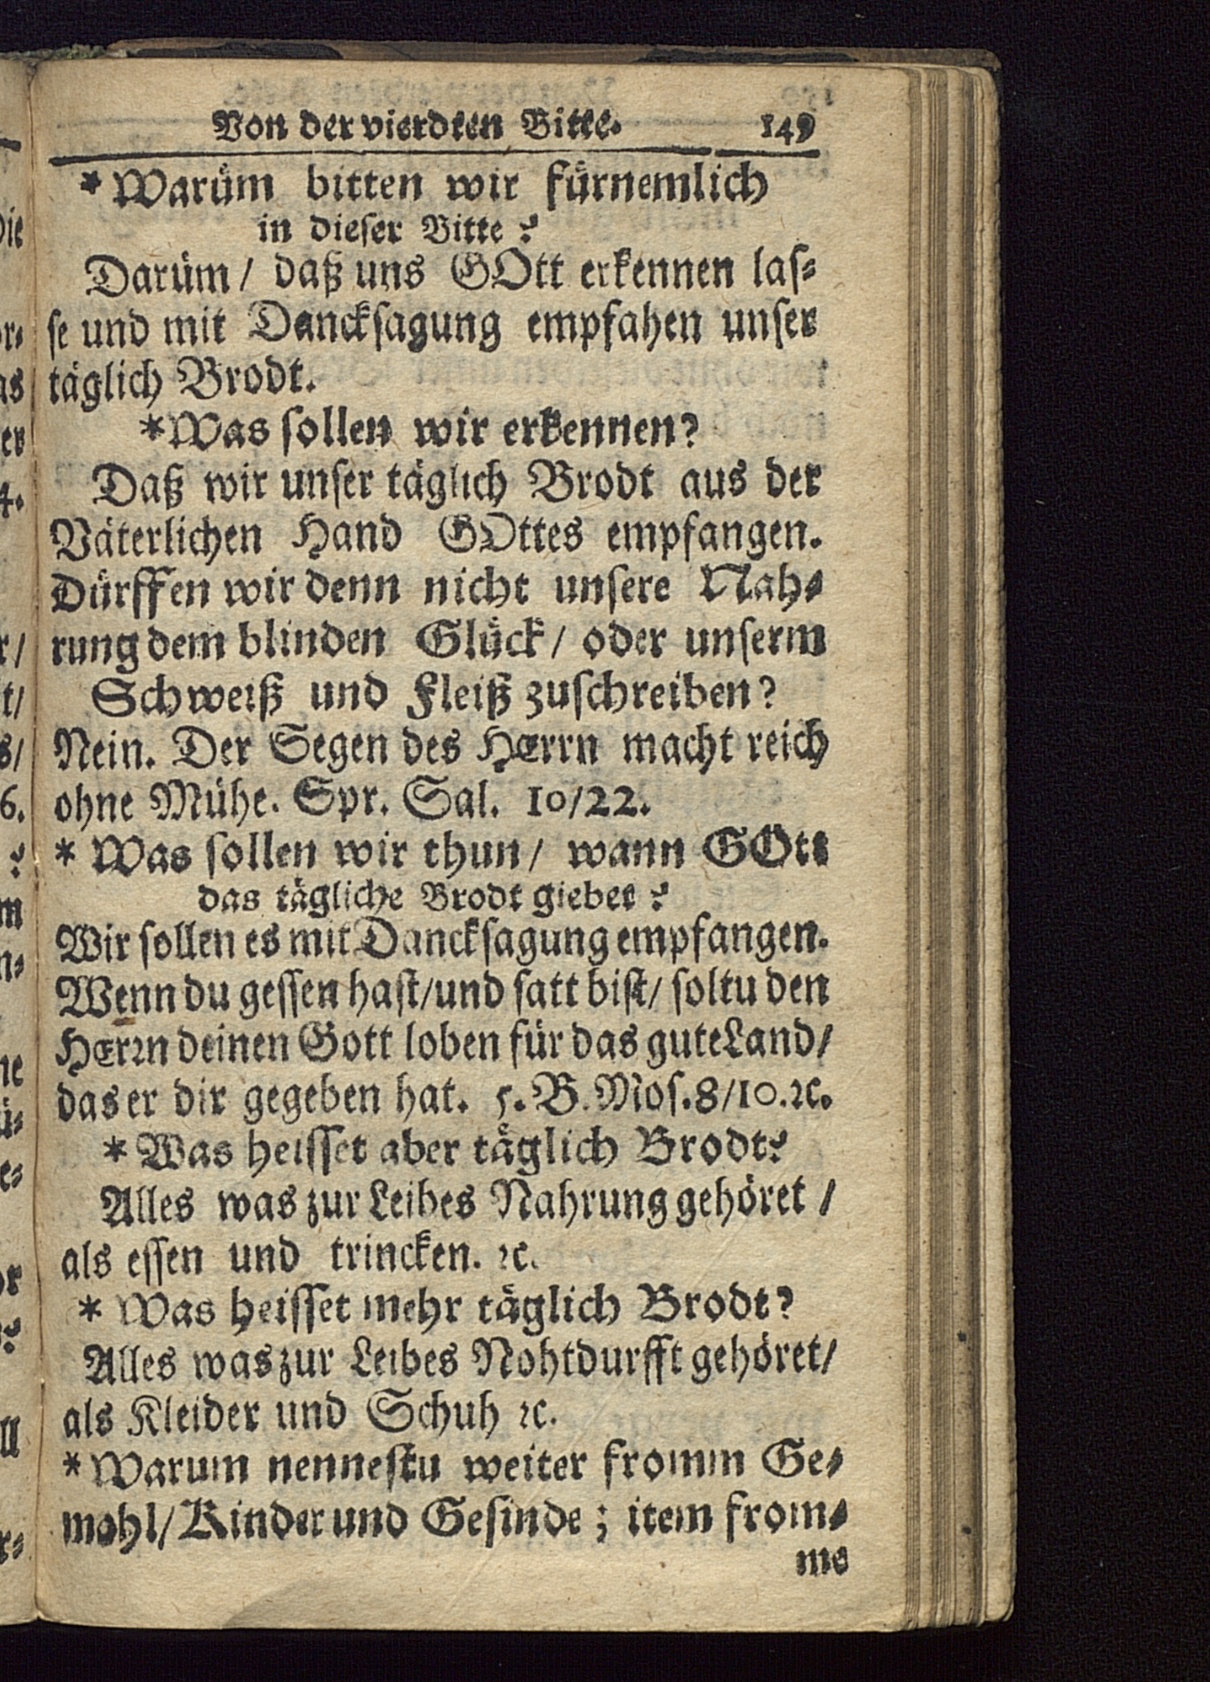 Von der vierdten Bitte. 149
* Warüm bitten wir fürnemlich
in dieser Bitte?
Darüm / daß uns GOtt erkennen las-
se und mit Dancksagung empfahen unser
täglich Brodt.
*Was sollen wir erkennen?
Daß wir unser täglich Brodt aus der
Väterlichen Hand GOttes empfangen.
Dürffen wir denn nicht unsere Nah-
rung dem blinden Glück / oder unserm
Schweiß und Fleiß zuschreiben?
Nein. Der Segen des HErrn macht reich
ohne Mühe. Spr. Sal. 10/22.
* Was sollen wir thun / wann GOtt
das tägliche Brodt giebet?
Wir sollen es mit Dancksagung empfangen.
Wenn du gessen hast/und satt bist/ soltu den
HErrn deinen Gott loben für das gute Land/
das er dir gegeben hat. 5. B. Mos. 8/10. ꝛc.
* Was heisset aber täglich Brodt?
Alles was zur Leibes Nahrung gehöret /
als essen und trincken. ꝛc.
* Was heisset mehr täglich Brodt?
Alles was zur Leibes Nohtdurfft gehöret/
als Kleider und Schuh ꝛc.
* Warum nennestu weiter fromm Ge-
mahl/Kinder und Gesinde; item from-
me